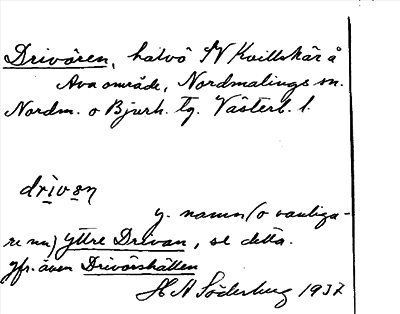 Drivören, halvö SV Kvillskär å
Ava område, Nordmalings sn.
Nordm. o Bjurh. tg. Västerb. l.
drivən
y. namn (o vanliga-
re nu) Yttre Drivan, se detta.
Jfr. även Drivörshällen
H A Söderberg 1937